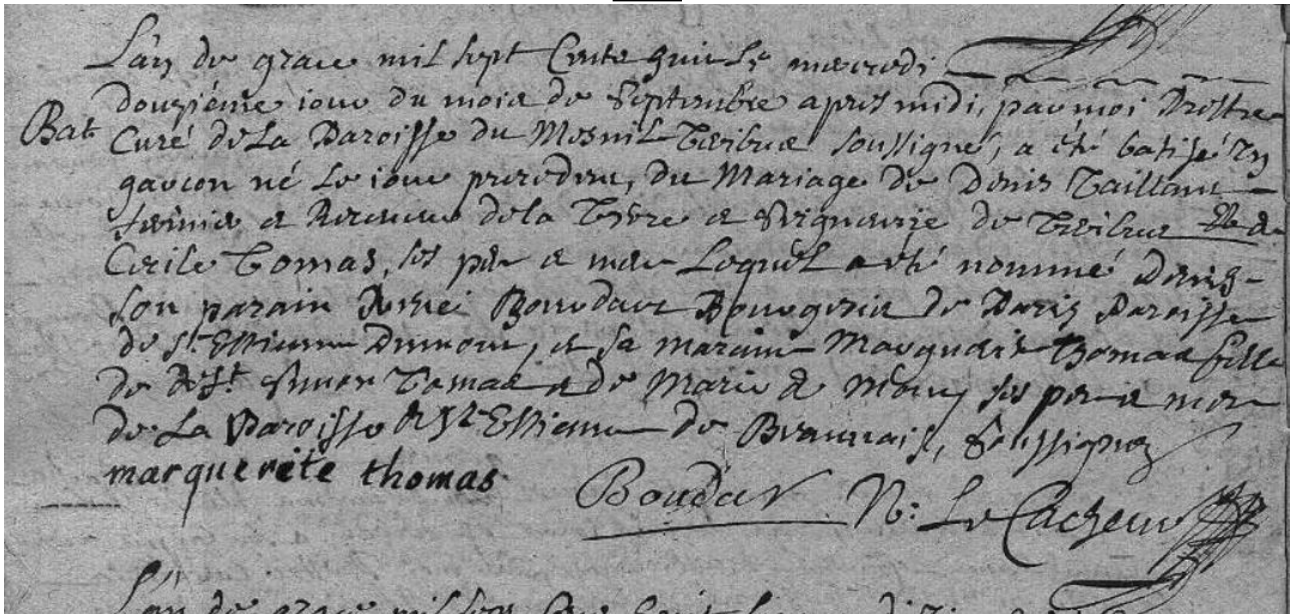 L'an de grace mil sept Cents quinze mercredi
Bat
douziéme jour du mois de Septembre apres midi, par moi Prestre
Curé de La Paroisse du Mesnil Teribus soussigné, a été batisé un
garcon né le jour precedent, du Mariage de Denis Taillant
fermier et Receveur de la Terre et Seigneurie de Teribus et de
Cecile Tomas, ses pere et mere Lequel a été nommé Denis
son parain Boudart Bourgeois de Paris Paroisse
de St. Estienne Dumont, et sa maraine Marguerite Thomas fille
de Tomas et de Marie de Mouy ses pere et mere
de La Paroisse de St Estienne de Beauvais, Soussignez
marquereite thomas
Boudar N: Le Cacheur
L'an de grace mil sept